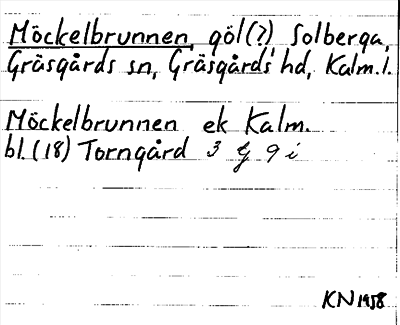 Möckelbrunnen, göl(?), Solberga,
Gräsgårds sn, Gräsgårds hd, Kalm. l.
Möckelbrunnen ek Kalm.
bl. (18) Torngård 3 g 9 i
KN 1958